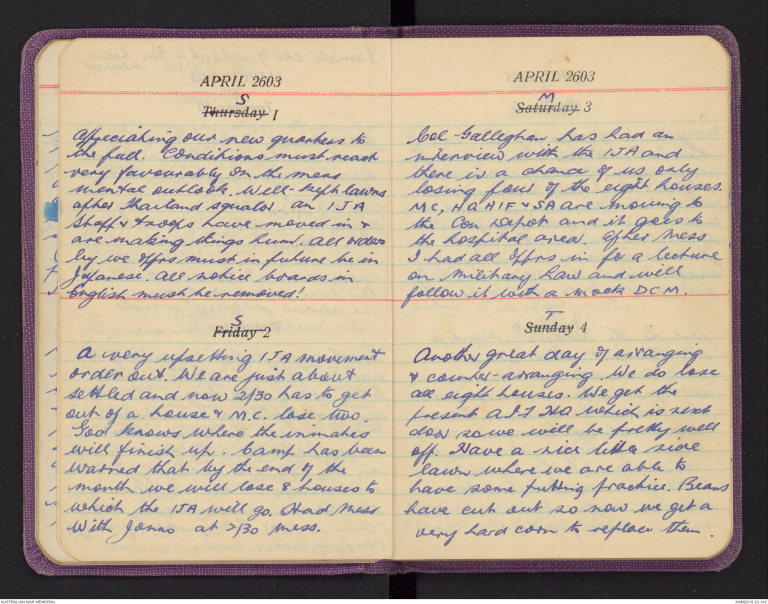 APRIL 2603
S
Thursday 1
Appreciating our new quarters to
the full. Conditions must react
very favourably on the mens
mental outlook. Well-kept lawns
after Thailand squalor. An IJA
Staff & troops have moved in &
are making things hum. All orders
by we offrs must in future be in
Japanese. All notice boards in
English must be removed!
S
Friday 2
A very upsetting IJA movement
order out. We are just about
settled and now 2/30 has to get
out of a house & M.C. lose two.
God knows where the inmates
will finish up. Camp has been
warned that by the end of the
month we will lose 8 houses to
which the IJA will go. Had Mess
With Jonno at 2/30 mess.
APRIL 2603
M
Saturday 3
Col Galleghan has had an
interview with the IJA and
there is a chance of us only
losing four of the eight houses.
MC, HQ AIF & SA are moving to
the Con Depot and it goes to
the hospital area. After Mess
I had all Offrs in for a lecture
on Military Law and will
follow it with a mock DCM.
T
Sunday 4
Another great day of arranging
& counter-arranging. We do lose
all eight houses. We get the
present AIF HQ which is next
door so we will be pretty well
off. Have a nice little side
lawn where we are able to
have some putting practice. Beans
have cut out so now we get a
very hard corn to replace them.
AUSTRALIAN WAR MEMORIAL